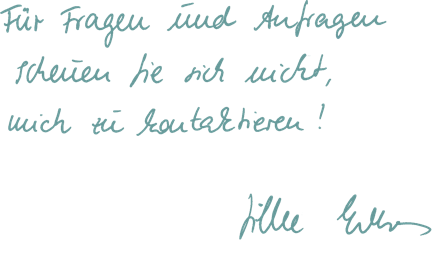 Für Fragen und Anfragen
scheuen Sie sich nicht,
mich zu kontaktieren!
Silke